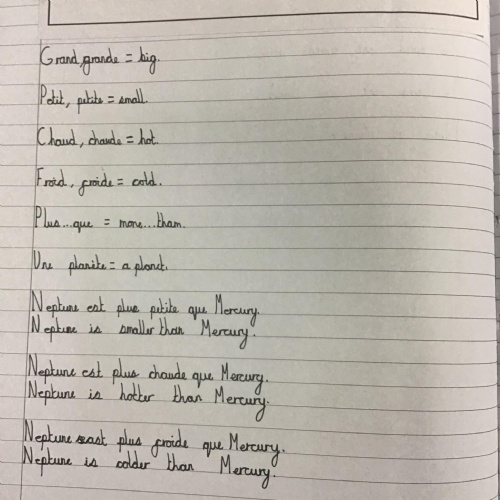 Grand, grande = big.
Petit, petite = small.
Chaud, chaude = hot.
Froid, froide = cold.
Plus...que = more...than.
Une planète = a planet.
Neptune est plus petite que Mercury.
Neptune is smaller than Mercury.
Neptune est plus chaude que Mercury.
Neptune is hotter than Mercury.
Neptune est plus froide que Mercury.
Neptune is colder than Mercury.